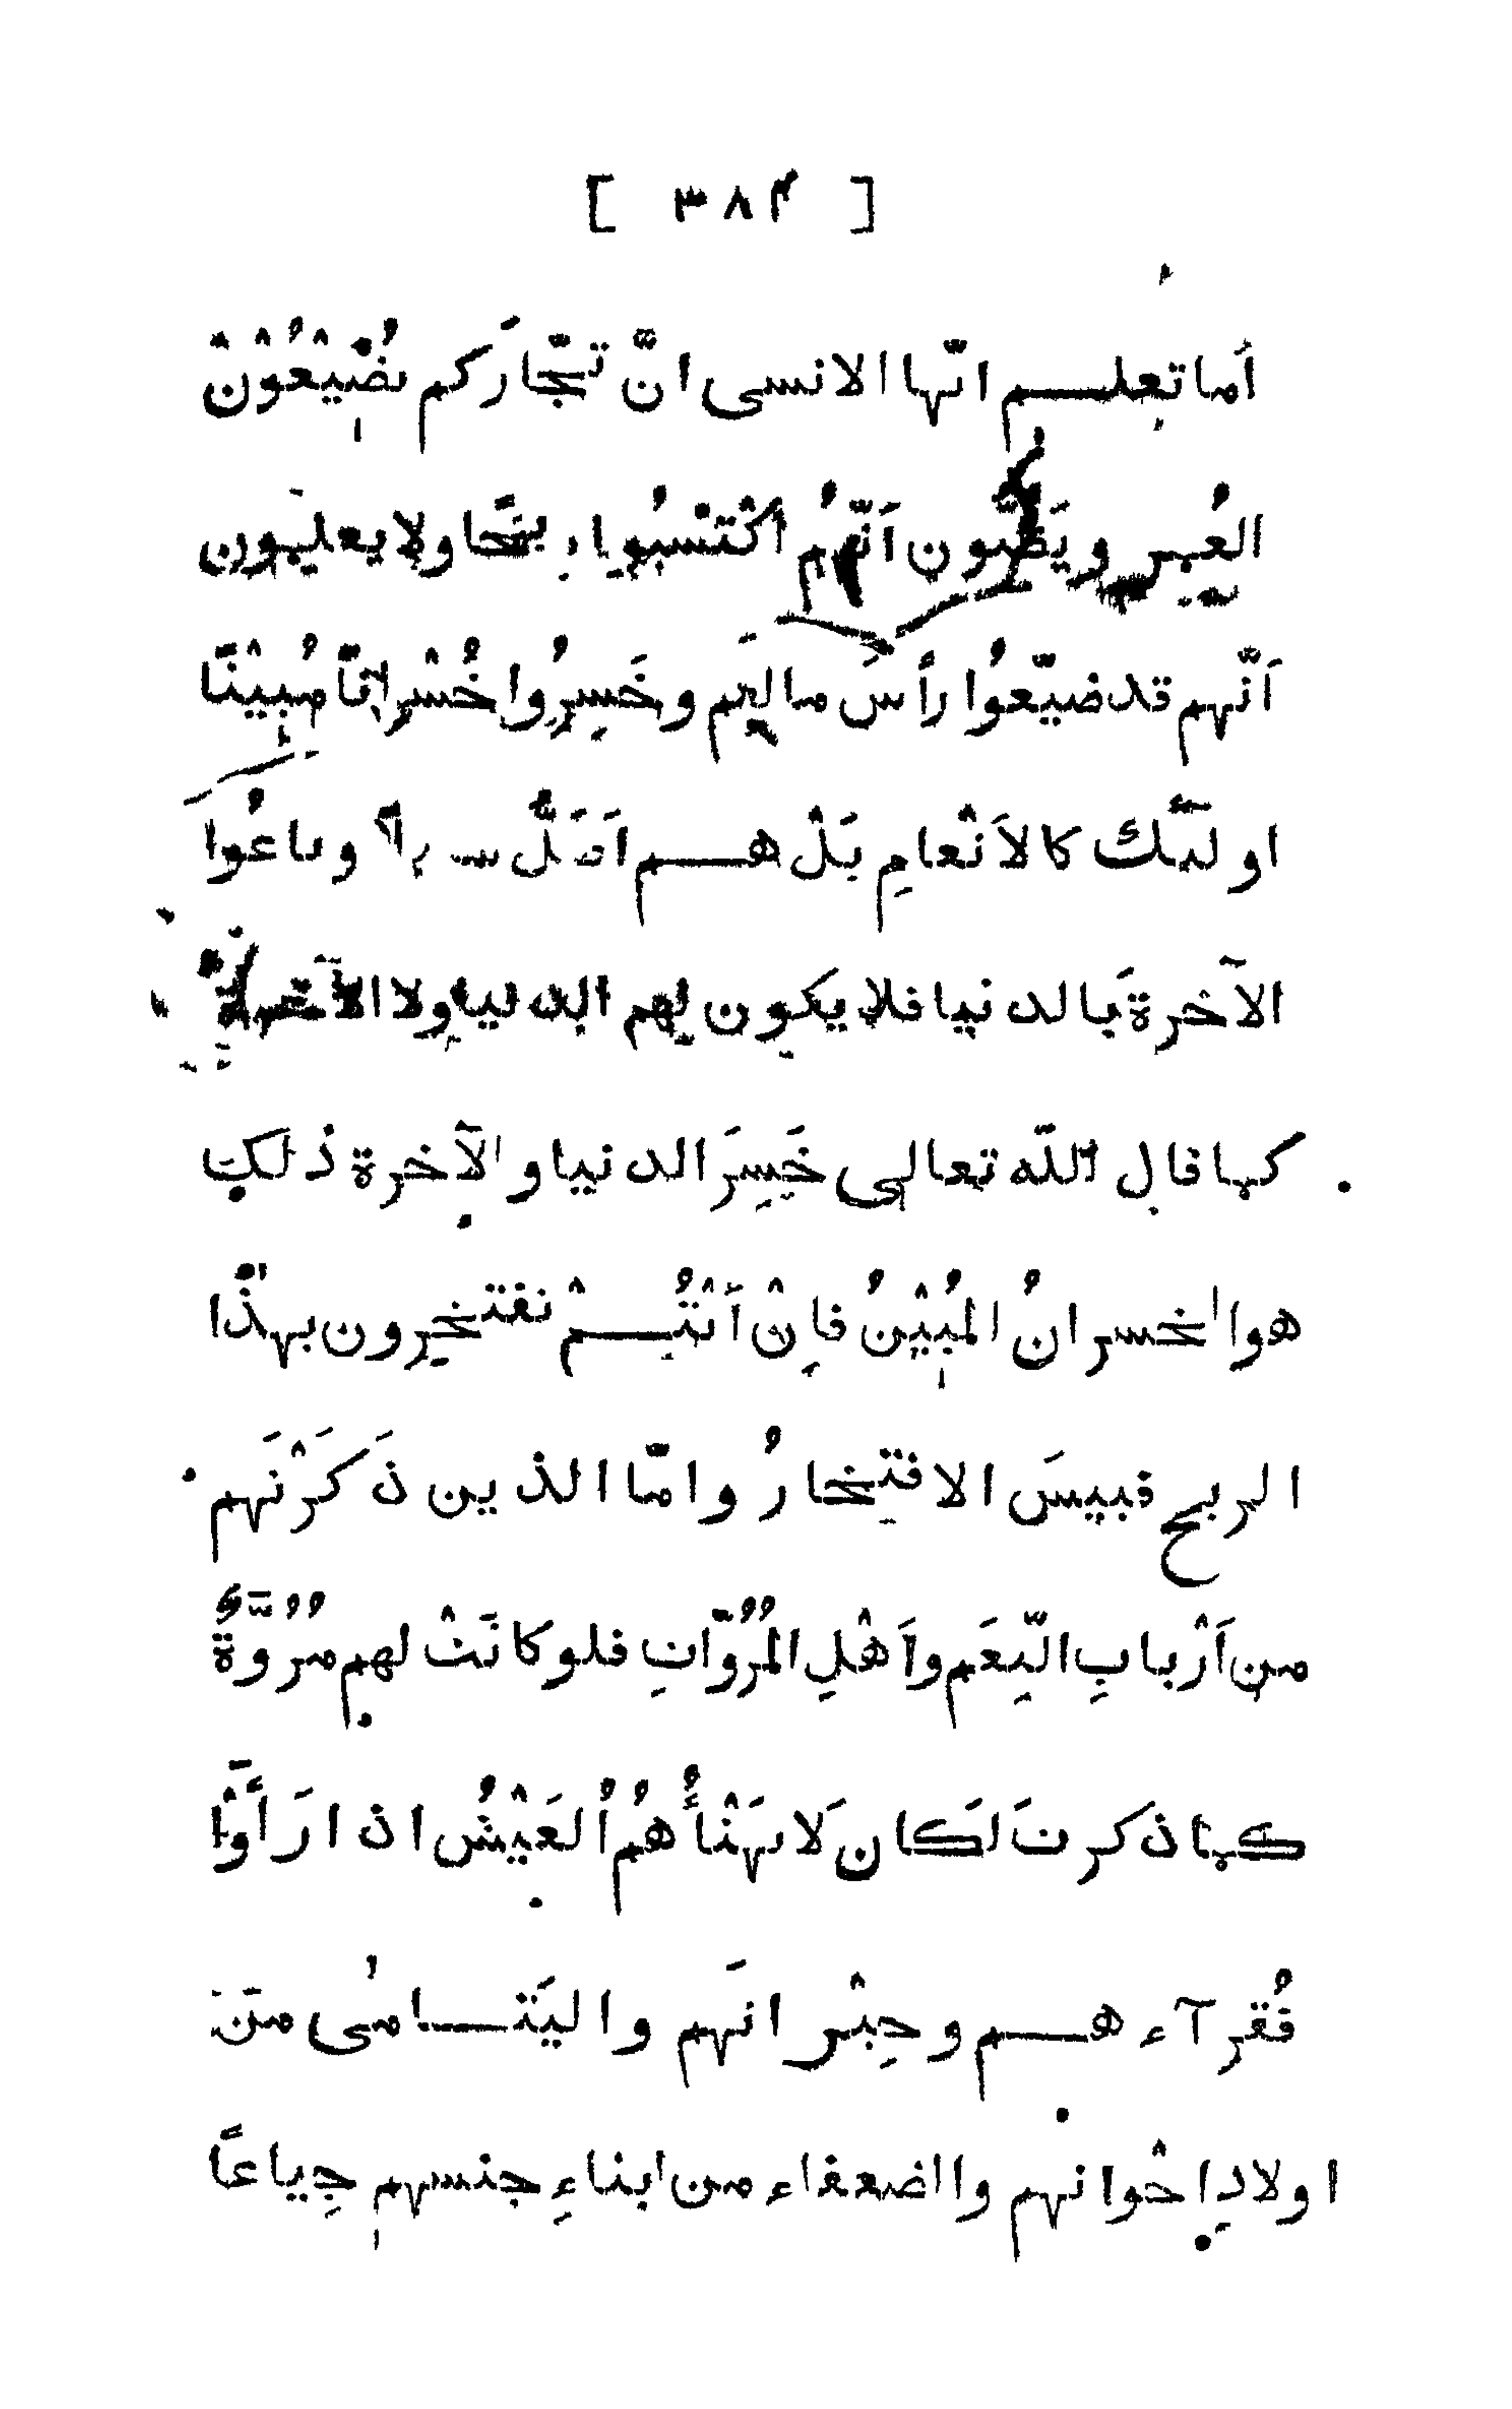 [ ٣٨٤ ]
أما تعلم ايّها الانسى انَّ تجّارَكم يُضِيْعُوْنَ
العُمر ويَظنّون اَنّهُم اكْتَسَبُوا ربحًا ولا يعلمون
اَنّهم قد ضيّعوُا رأسَ مالهم وخَسِرُوا خُسْرانًا مُبِيْنًا
اولئك كالاَنْعامِ بَلْ هم اَضَلُّ وباعُوا
الآخرة بالدنيا فلا يكون لهم الدنيا ولا الآخرة
كما قال اللّه تعالى خَسِرَ الدنيا والآخرة ذلك
هو الخسرانُ المُبِيْنُ فاِنْ أَنْتُمْ تفتخرون بهذا
الربح فبيسَ الافتخارُ وامّا الذين ذَكَرْتَهم
من اَرْبابِ النِّعَم واَهْلِ المُرُوّاتِ فلو كانَتْ لهم مُرُوَّةٌ
كما ذكرتَ لَكان لَا يَهْنَأُهُمُ العَيْشُ اذا رَأَوْا
فُقرآءهم وجِيْرانَهم واليَتامٰى من
اولادِ اخْوانهم والضعفاء من ابناءِ جنسهم جِياعًا